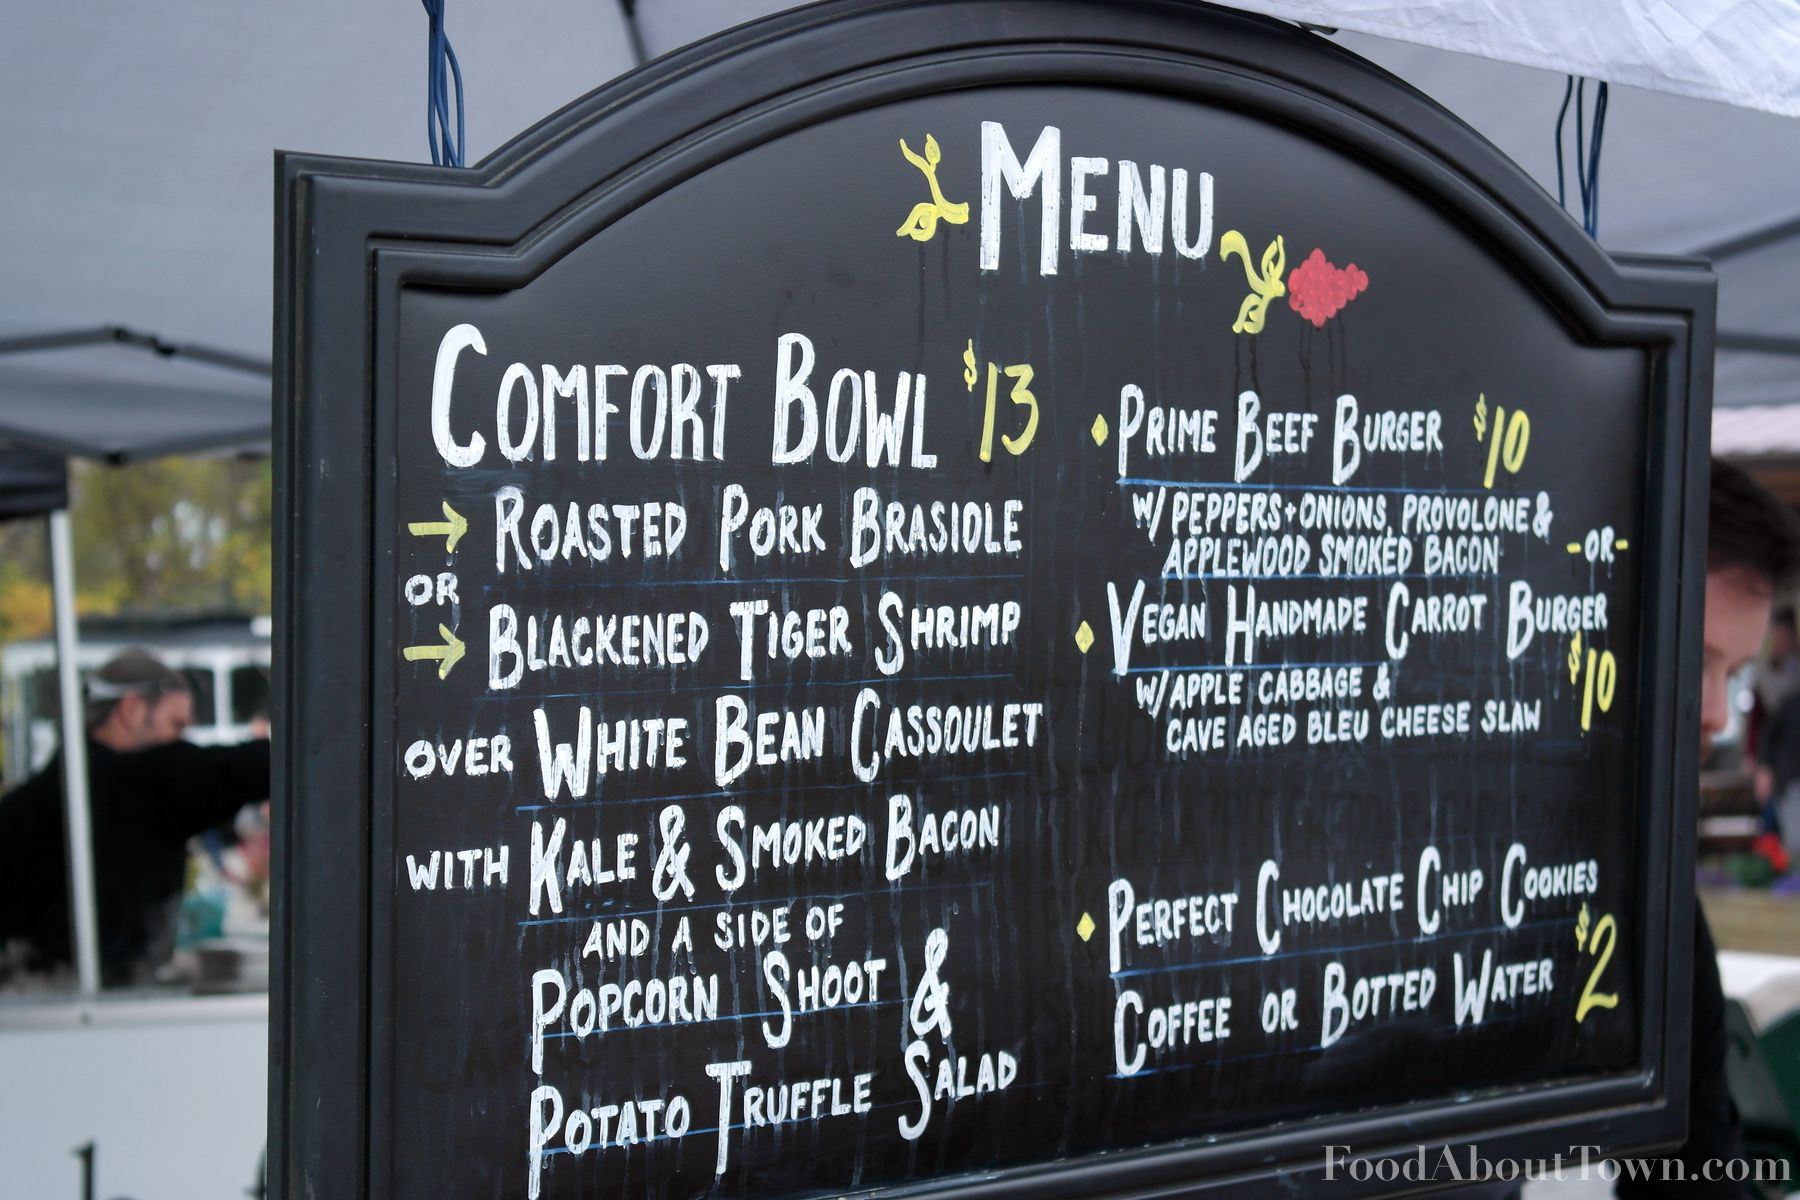 MENU
COMFORT BOWL $13
ROASTED PORK BRASIOLE
OR
BLACKENED TIGER SHRIMP
OVER WHITE BEAN CASSOULET
WITH KALE & SMOKED BACON
AND A SIDE OF
POPCORN SHOOT &
POTATO TRUFFLE SALAD
PRIME BEEF BURGER $10
W/ PEPPERS + ONIONS, PROVOLONE &
APPLEWOOD SMOKED BACON
-OR-
VEGAN HANDMADE CARROT BURGER
$10
W/ APPLE CABBAGE &
CAVE AGED BLEU CHEESE SLAW
PERFECT CHOCOLATE CHIP COOKIES
COFFEE OR BOTTED WATER $2
FoodAboutTown.com